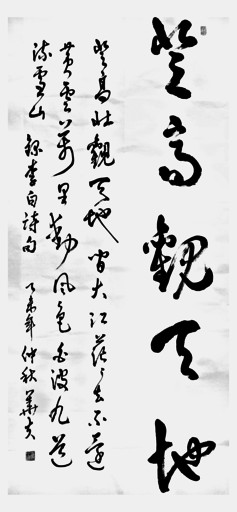 登高觀天地
登高壯觀天地間大江茫々去不還
黃雲萬里動風色白波九道
流雪山 錄李白詩句 乙未年仲秋